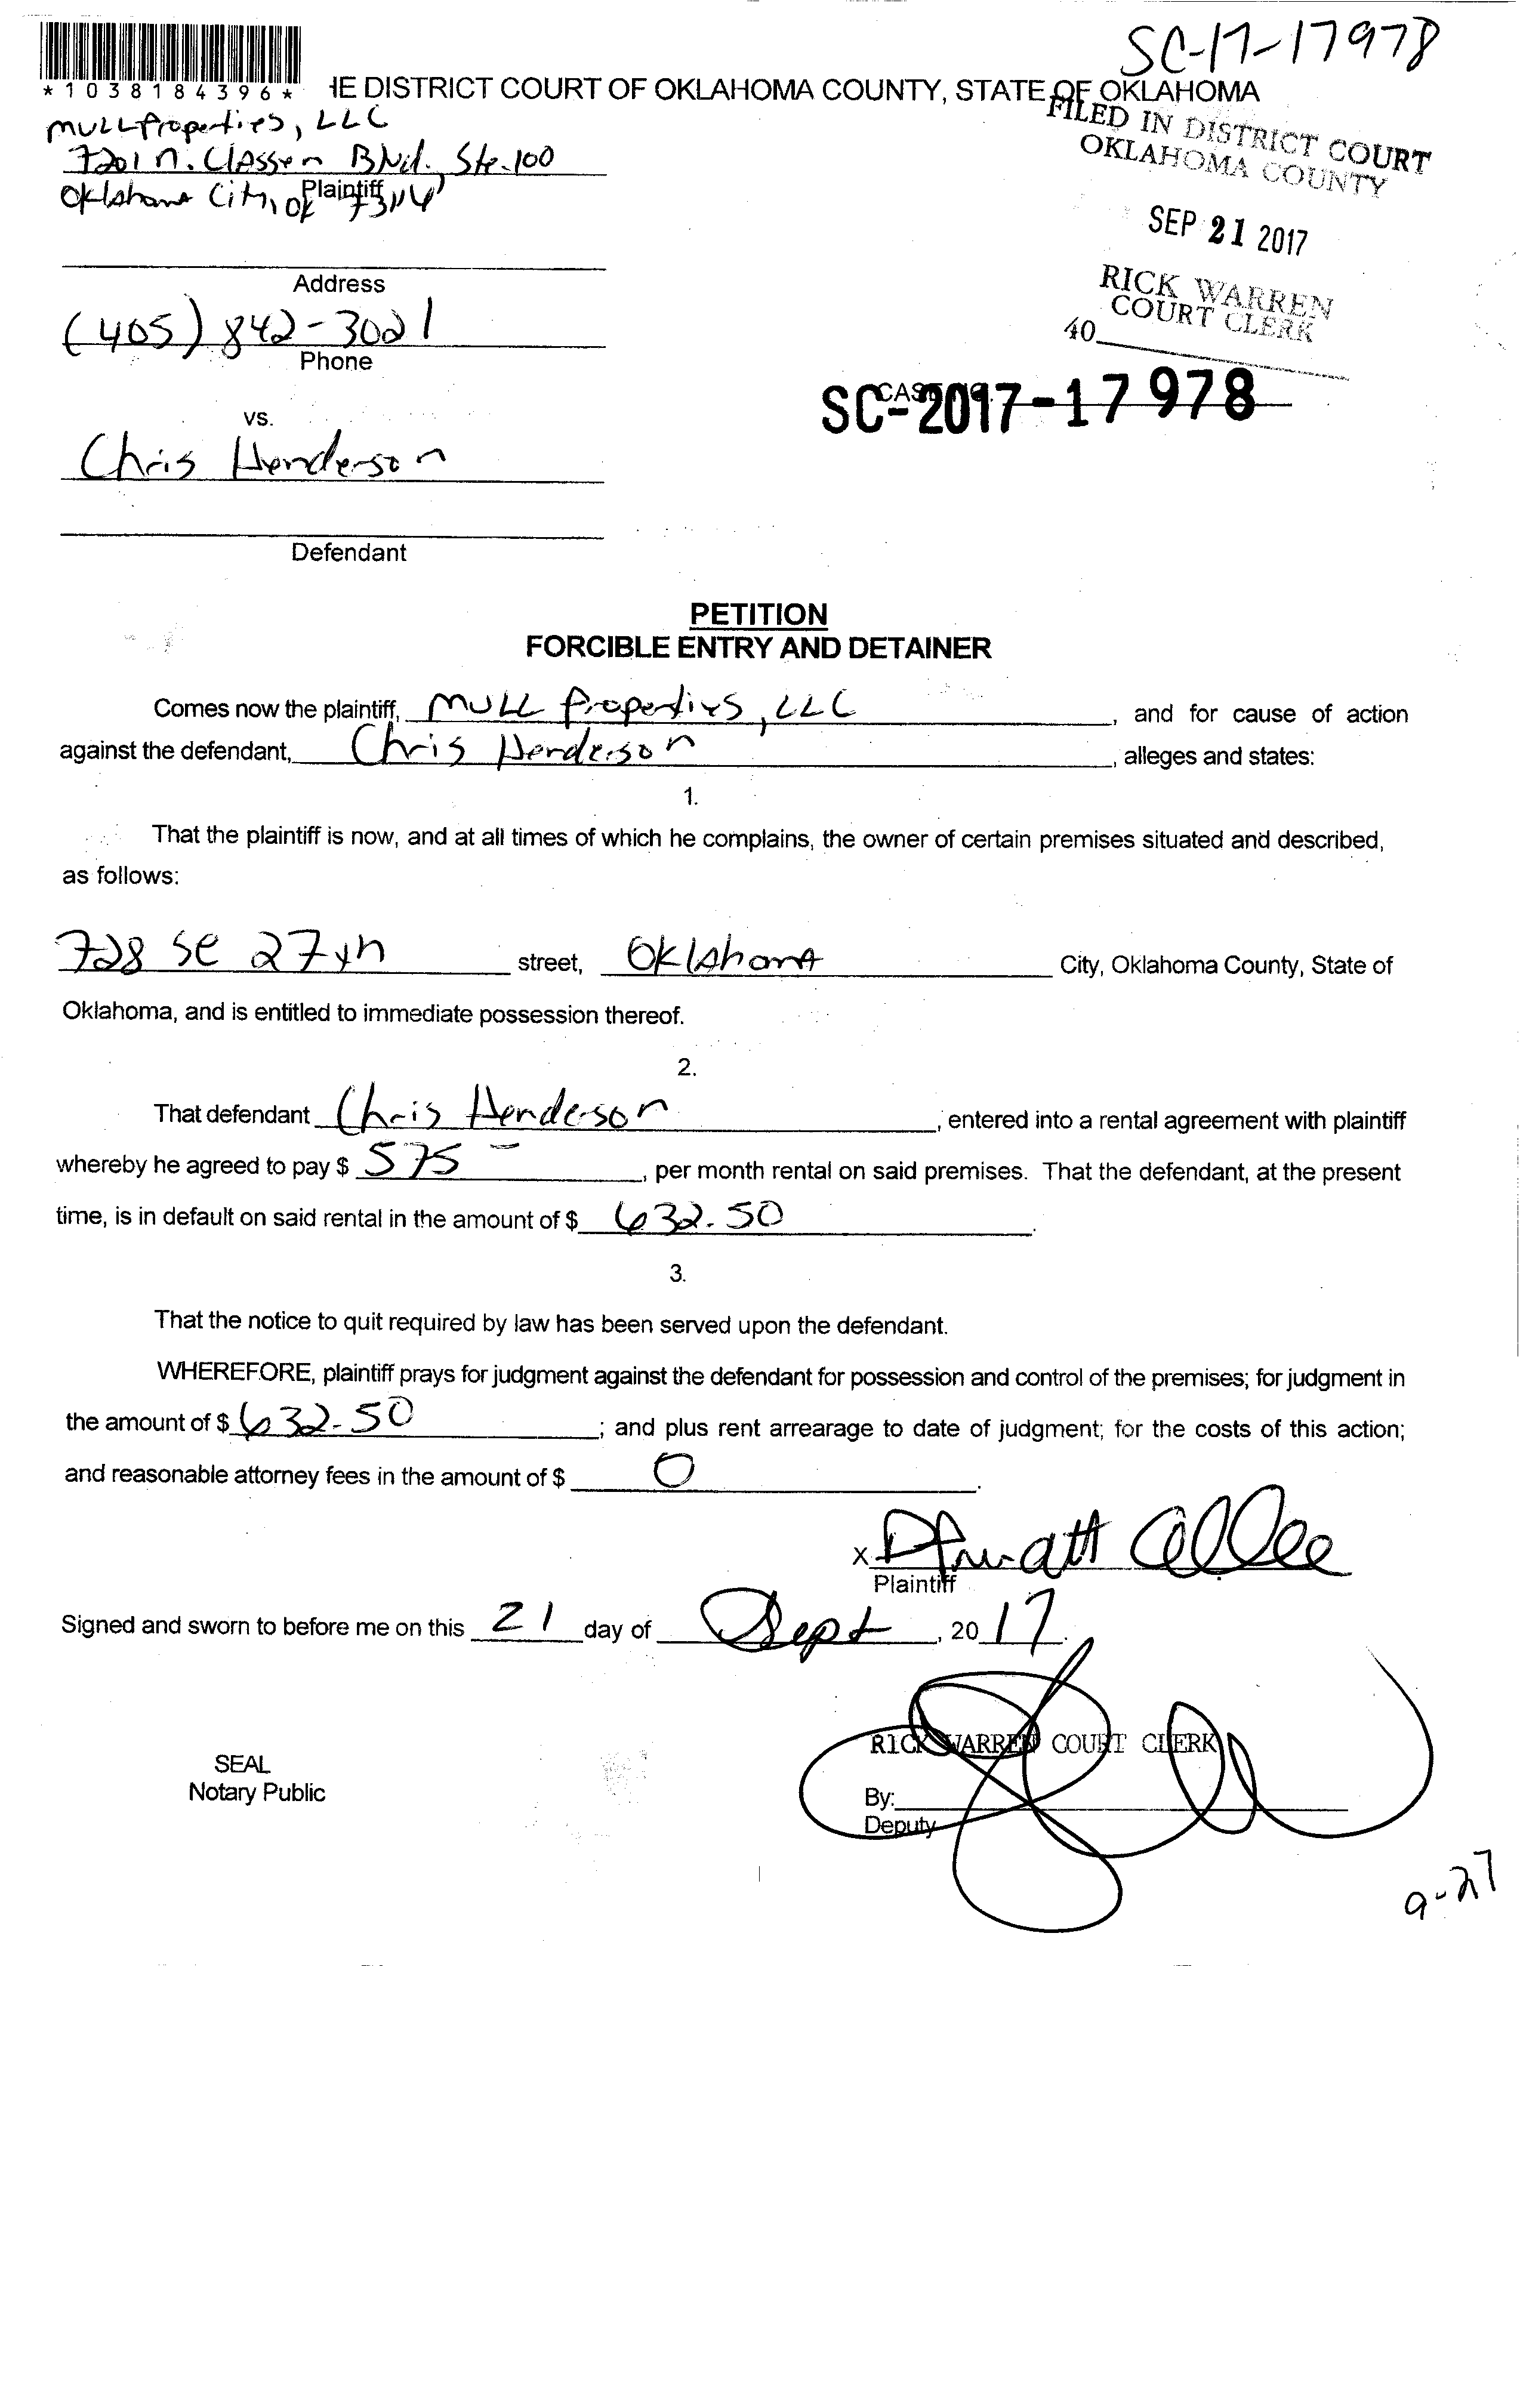 SC-17-17978
*1038184396* HE DISTRICT COURT OF OKLAHOMA COUNTY, STATE OF OKLAHOMA
MULL Properties, LLC
7201 N. Classen Blvd. Ste. 100
Oklahoma City, OK 73116
Plaintiff
FILED IN DISTRICT COURT
OKLAHOMA COUNTY
SEP 21 2017
RICK WARREN
COURT CLERK
40
Address
(405) 842-3021
Phone
SC-2017-17978
vs.
Chris Henderson
Defendant
PETITION
FORCIBLE ENTRY AND DETAINER
Comes now the plaintiff, MULL Properties, LLC, and for cause of action
against the defendant, Chris Henderson, alleges and states:
1.
That the plaintiff is now, and at all times of which he complains, the owner of certain premises situated and described,
as follows:
728 SE 27th street, Oklahoma City, Oklahoma County, State of
Oklahoma, and is entitled to immediate possession thereof.
2.
That defendant Chris Henderson, entered into a rental agreement with plaintiff
whereby he agreed to pay $ 575 –, per month rental on said premises. That the defendant, at the present
time, is in default on said rental in the amount of $ 632.50.
3.
That the notice to quit required by law has been served upon the defendant.
WHEREFORE, plaintiff prays for judgment against the defendant for possession and control of the premises; for judgment in
the amount of $ 632.50; and plus rent arrearage to date of judgment; for the costs of this action;
and reasonable attorney fees in the amount of $ 0.
X
Plaintiff
Signed and sworn to before me on this 21 day of Sept, 2017.
RICK WARREN COURT CLERK
SEAL
Notary Public
By:
Deputy
9-27